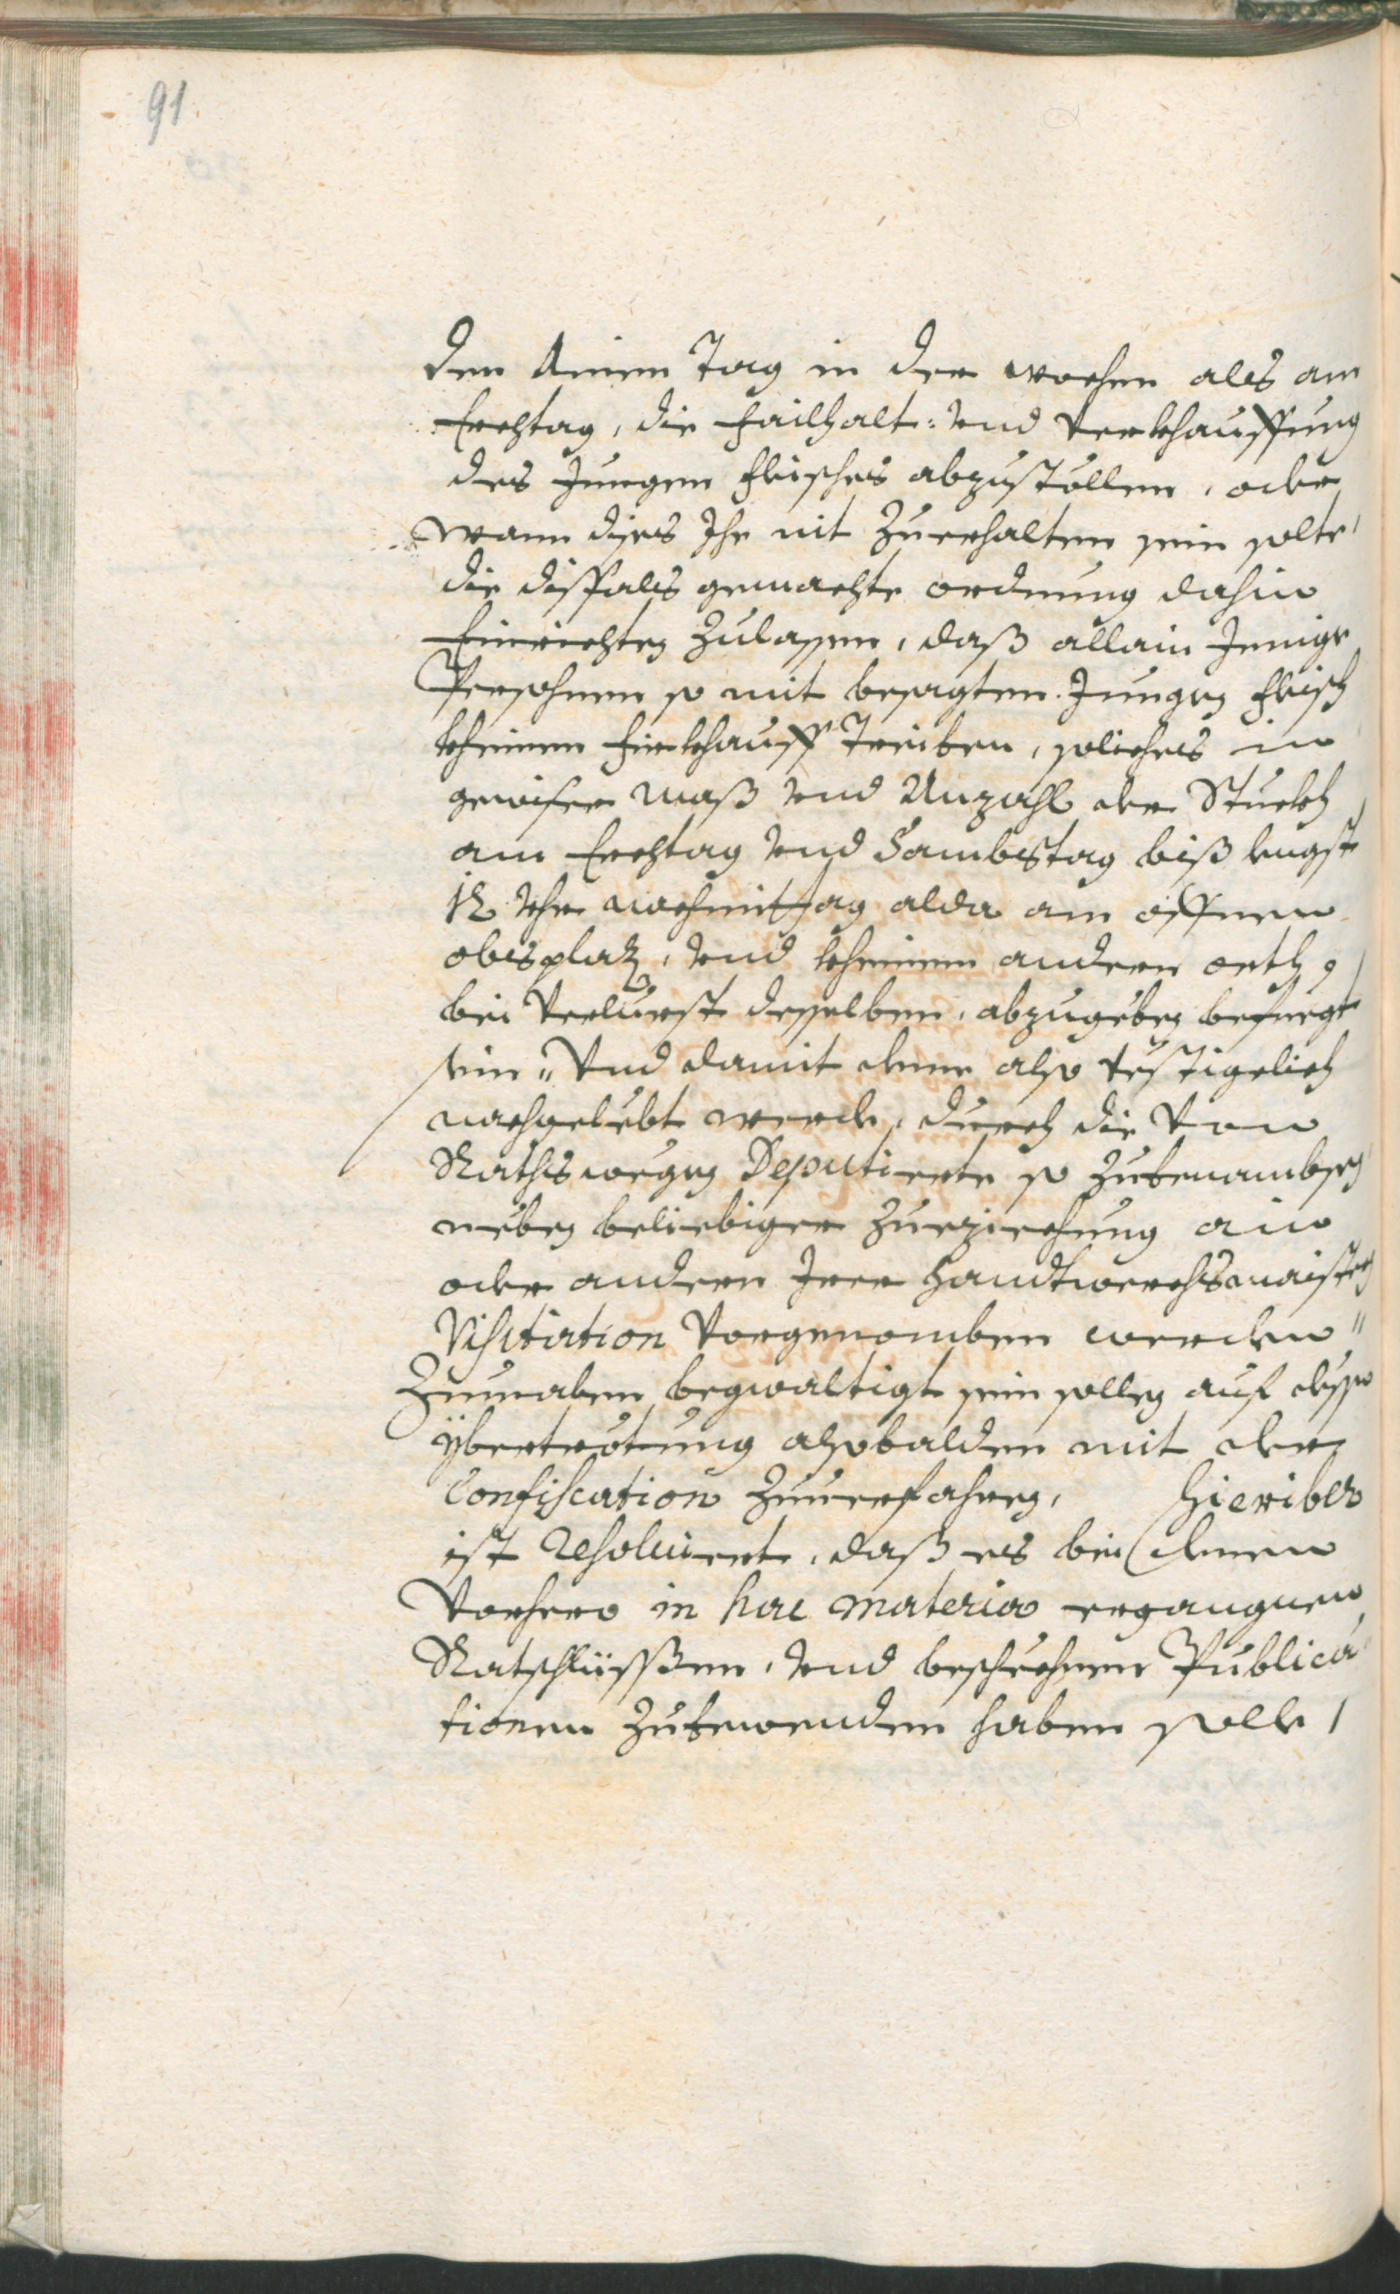 91
den ainen Tag in der wochen als am
Erchtag, die Failhalt: vnd Verkhauffung
des Jungen fleisches abzustöllen, oder
wann dises Ihe nit zuerhalten sein solte,
die dißfals gemachte ordnung dahin
Einrichten zulassen, daß allain Jenige
Persohnen so mit besagten Jungen fleisch
kheinen Firkhauff Treiben, soliches in
gewiser maß vnd Anzahl der Stuckh
am Erchtag vnd Sambstag biß lengst
12 Vhr nachmittag alda am offnen
obsplatz, vnd kheinem andern orth,
bei Verlurst desselben, abzugeben befuegt
sein" Vnd damit deme also vestigelich
nachgelebt werde, durch die Von
Rathswegen Deputierte so zubenambsen
neben beliebiger zuerziechung ain
oder andern Irer Handtwerchsmaister
Visitation Vorgenomben werden"
Zumalen begwaltigt sein sollen auf dessen
ÿbertretung alsobalden mit der
Confiscation zuuerfahren, Hieriber
ist resoluiert, daß es bei denen
Vorhero in hac materia ergangnen
Ratschlüssßen, vnd beschechnen Publica
tionen zubewenden haben solle /